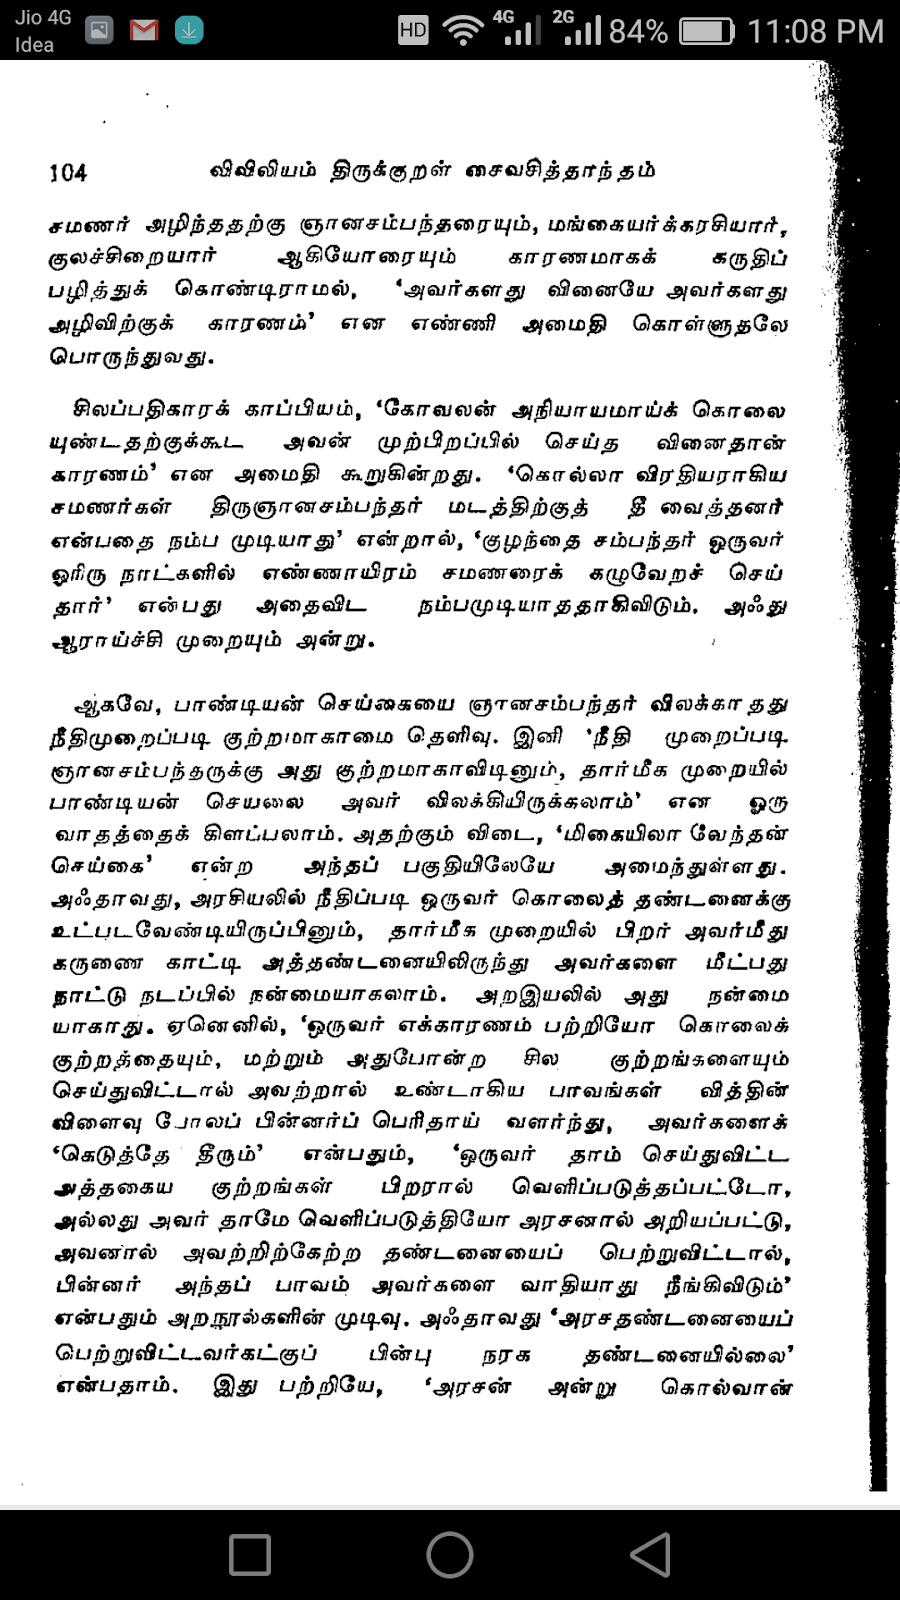 Jio 4G
Idea
HD 4G 2G 84% 11:08 PM
104 விவிலியம் திருக்குறள் சைவசித்தாந்தம்
சமணர் அழிந்ததற்கு ஞானசம்பந்தரையும், மங்கையர்க்கரசியார்,
குலச்சிறையார் ஆகியோரையும் காரணமாகக் கருதிப்
பழித்துக் கொண்டிராமல், ‘அவர்களது வினையே அவர்களது
அழிவிற்குக் காரணம்’ என எண்ணி அமைதி கொள்ளுதலே
பொருந்துவது.
சிலப்பதிகாரக் காப்பியம், ‘கோவலன் அநியாயமாய்க் கொலை
யுண்டதற்குக்கூட அவன் முற்பிறப்பில் செய்த வினைதான்
காரணம்’ என அமைதி கூறுகின்றது. ‘கொல்லா விரதியராகிய
சமணர்கள் திருஞானசம்பந்தர் மடத்திற்குத் தீ வைத்தனர்
என்பதை நம்ப முடியாது’ என்றால், ‘குழந்தை சம்பந்தர் ஒருவர்
ஓரிரு நாட்களில் எண்ணாயிரம் சமணரைக் கழுவேறச் செய்
தார்’ என்பது அதைவிட நம்பமுடியாததாகிவிடும். அஃது
ஆராய்ச்சி முறையும் அன்று.
ஆகவே, பாண்டியன் செய்கையை ஞானசம்பந்தர் விலக்காதது
நீதிமுறைப்படி குற்றமாகாமை தெளிவு. இனி ‘நீதி முறைப்படி
ஞானசம்பந்தருக்கு அது குற்றமாகாவிடினும், தார்மீக முறையில்
பாண்டியன் செயலை அவர் விலக்கியிருக்கலாம்’ என ஓரு
வாதத்தைக் கிளப்பலாம். அதற்கும் விடை, ‘மிகையிலா வேந்தன்
செய்கை’ என்ற அந்தப் பகுதியிலேயே அமைந்துள்ளது.
அஃதாவது, அரசியலில் நீதிப்படி ஒருவர் கொலைத் தண்டனைக்கு
உட்படவேண்டியிருப்பினும், தார்மீக முறையில் பிறர் அவர்மீது
கருணை காட்டி அத்தண்டனையிலிருந்து அவர்களை மீட்பது
நாட்டு நடப்பில் நன்மையாகலாம். அறஇயலில் அது நன்மை
யாகாது. ஏனெனில், ‘ஒருவர் எக்காரணம் பற்றியோ கொலைக்
குற்றத்தையும், மற்றும் அதுபோன்ற சில குற்றங்களையும்
செய்துவிட்டால் அவற்றால் உண்டாகிய பாவங்கள் வித்தின்
விளைவு போலப் பின்னர்ப் பெரிதாய் வளர்ந்து, அவர்களைக்
‘கெடுத்தே தீரும்’ என்பதும், ‘ஒருவர் தாம் செய்துவிட்ட
அத்தகைய குற்றங்கள் பிறரால் வெளிப்படுத்தப்பட்டோ,
அல்லது அவர் தாமே வெளிப்படுத்தியோ அரசனால் அறியப்பட்டு,
அவனால் அவற்றிற்கேற்ற தண்டனையைப் பெற்றுவிட்டால்,
பின்னர் அந்தப் பாவம் அவர்களை வாதியாது நீங்கிவிடும்’
என்பதும் அறநூல்களின் முடிவு. அஃதாவது ‘அரசதண்டனையைப்
பெற்றுவிட்டவர்கட்குப் பின்பு நரக தண்டனையில்லை’
என்பதாம். இது பற்றியே, ‘அரசன் அன்று கொல்வான்